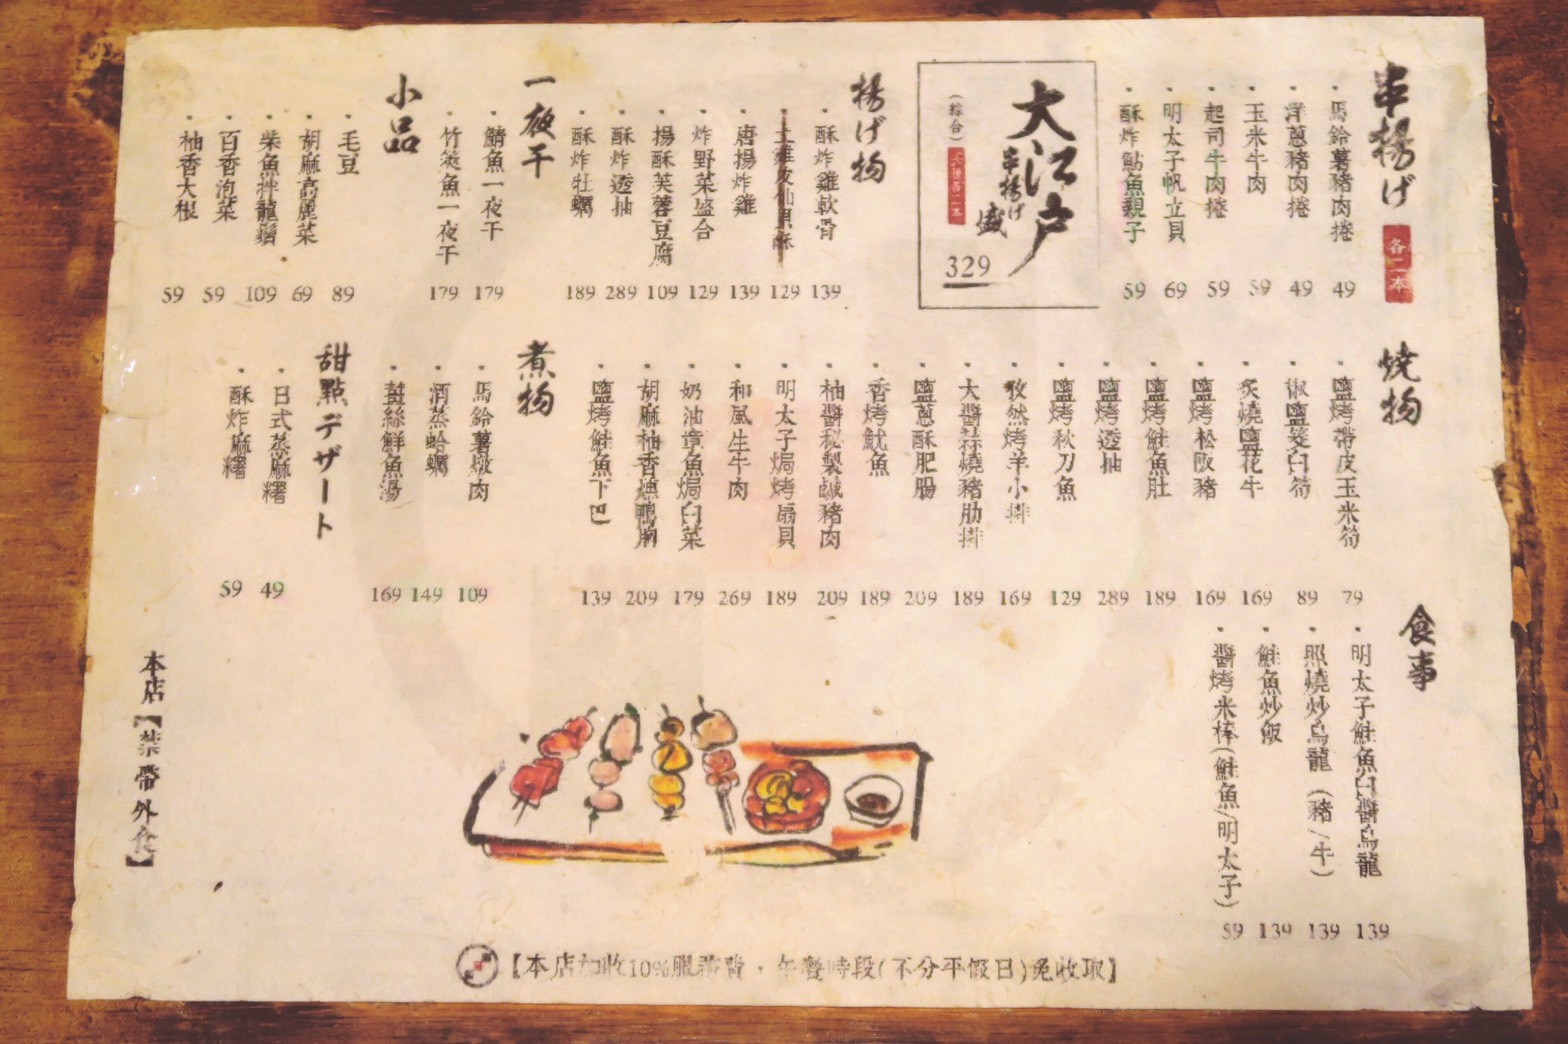 串揚げ
各一本
・馬鈴薯豬肉捲 49
・洋蔥豬肉捲 49
・玉米牛肉 59
・起司牛肉捲 59
・明太子帆立貝 69
・酥炸鮎魚親子 59
大江戶
串揚げ
盛
(綜合)
329
揚げ物
・酥炸雞軟骨 139
129
・唐揚炸雞 139
・炸野菜盛合 129
・揚酥芙蓉豆腐 109
・酥炸透抽 289
・酥炸牡蠣 189
一夜干
・鯖魚一夜干 179
・竹筴魚一夜干 179
小品
・毛豆 89
・胡麻高麗菜 69
・柴魚拌龍鬚 109
・百香泡菜 59
・柚香大根 59
燒物
・鹽烤帶皮玉米筍 79
・椒鹽茭白筍 89
・炙燒鹽花牛 169
・鹽烤松阪豬 169
・鹽烤鮭魚肚 189
・鹽烤透抽 289
・鹽烤秋刀魚 129
・孜然烤羊小排 169
・大醬蒜燒豬肋排 189
・鹽蔥酥肥腸 209
・香烤魷魚 189
・柚醬秘製鹹豬肉 209
・明太子焗烤扇貝 189
・和風生牛肉 269
・奶油章魚焗白菜 179
・胡麻柚香燻鴨胸 209
・鹽烤鮭魚下巴 139
煮物
・馬鈴薯燉肉 109
・酒蒸蛤蠣 149
・薑絲鮮魚湯 169
甜點デザート
・日式蒸麻糬 49
・酥炸麻糬 59
食事
・明太子鮭魚白醬烏龍 139
・照燒炒烏龍(豬/牛) 139
・鮭魚炒飯 139
・醬烤米棒(鮭魚/明太子) 59
本店【禁帶外食】
【本店加收10%服務費，午餐時段(不分平假日)免收取】